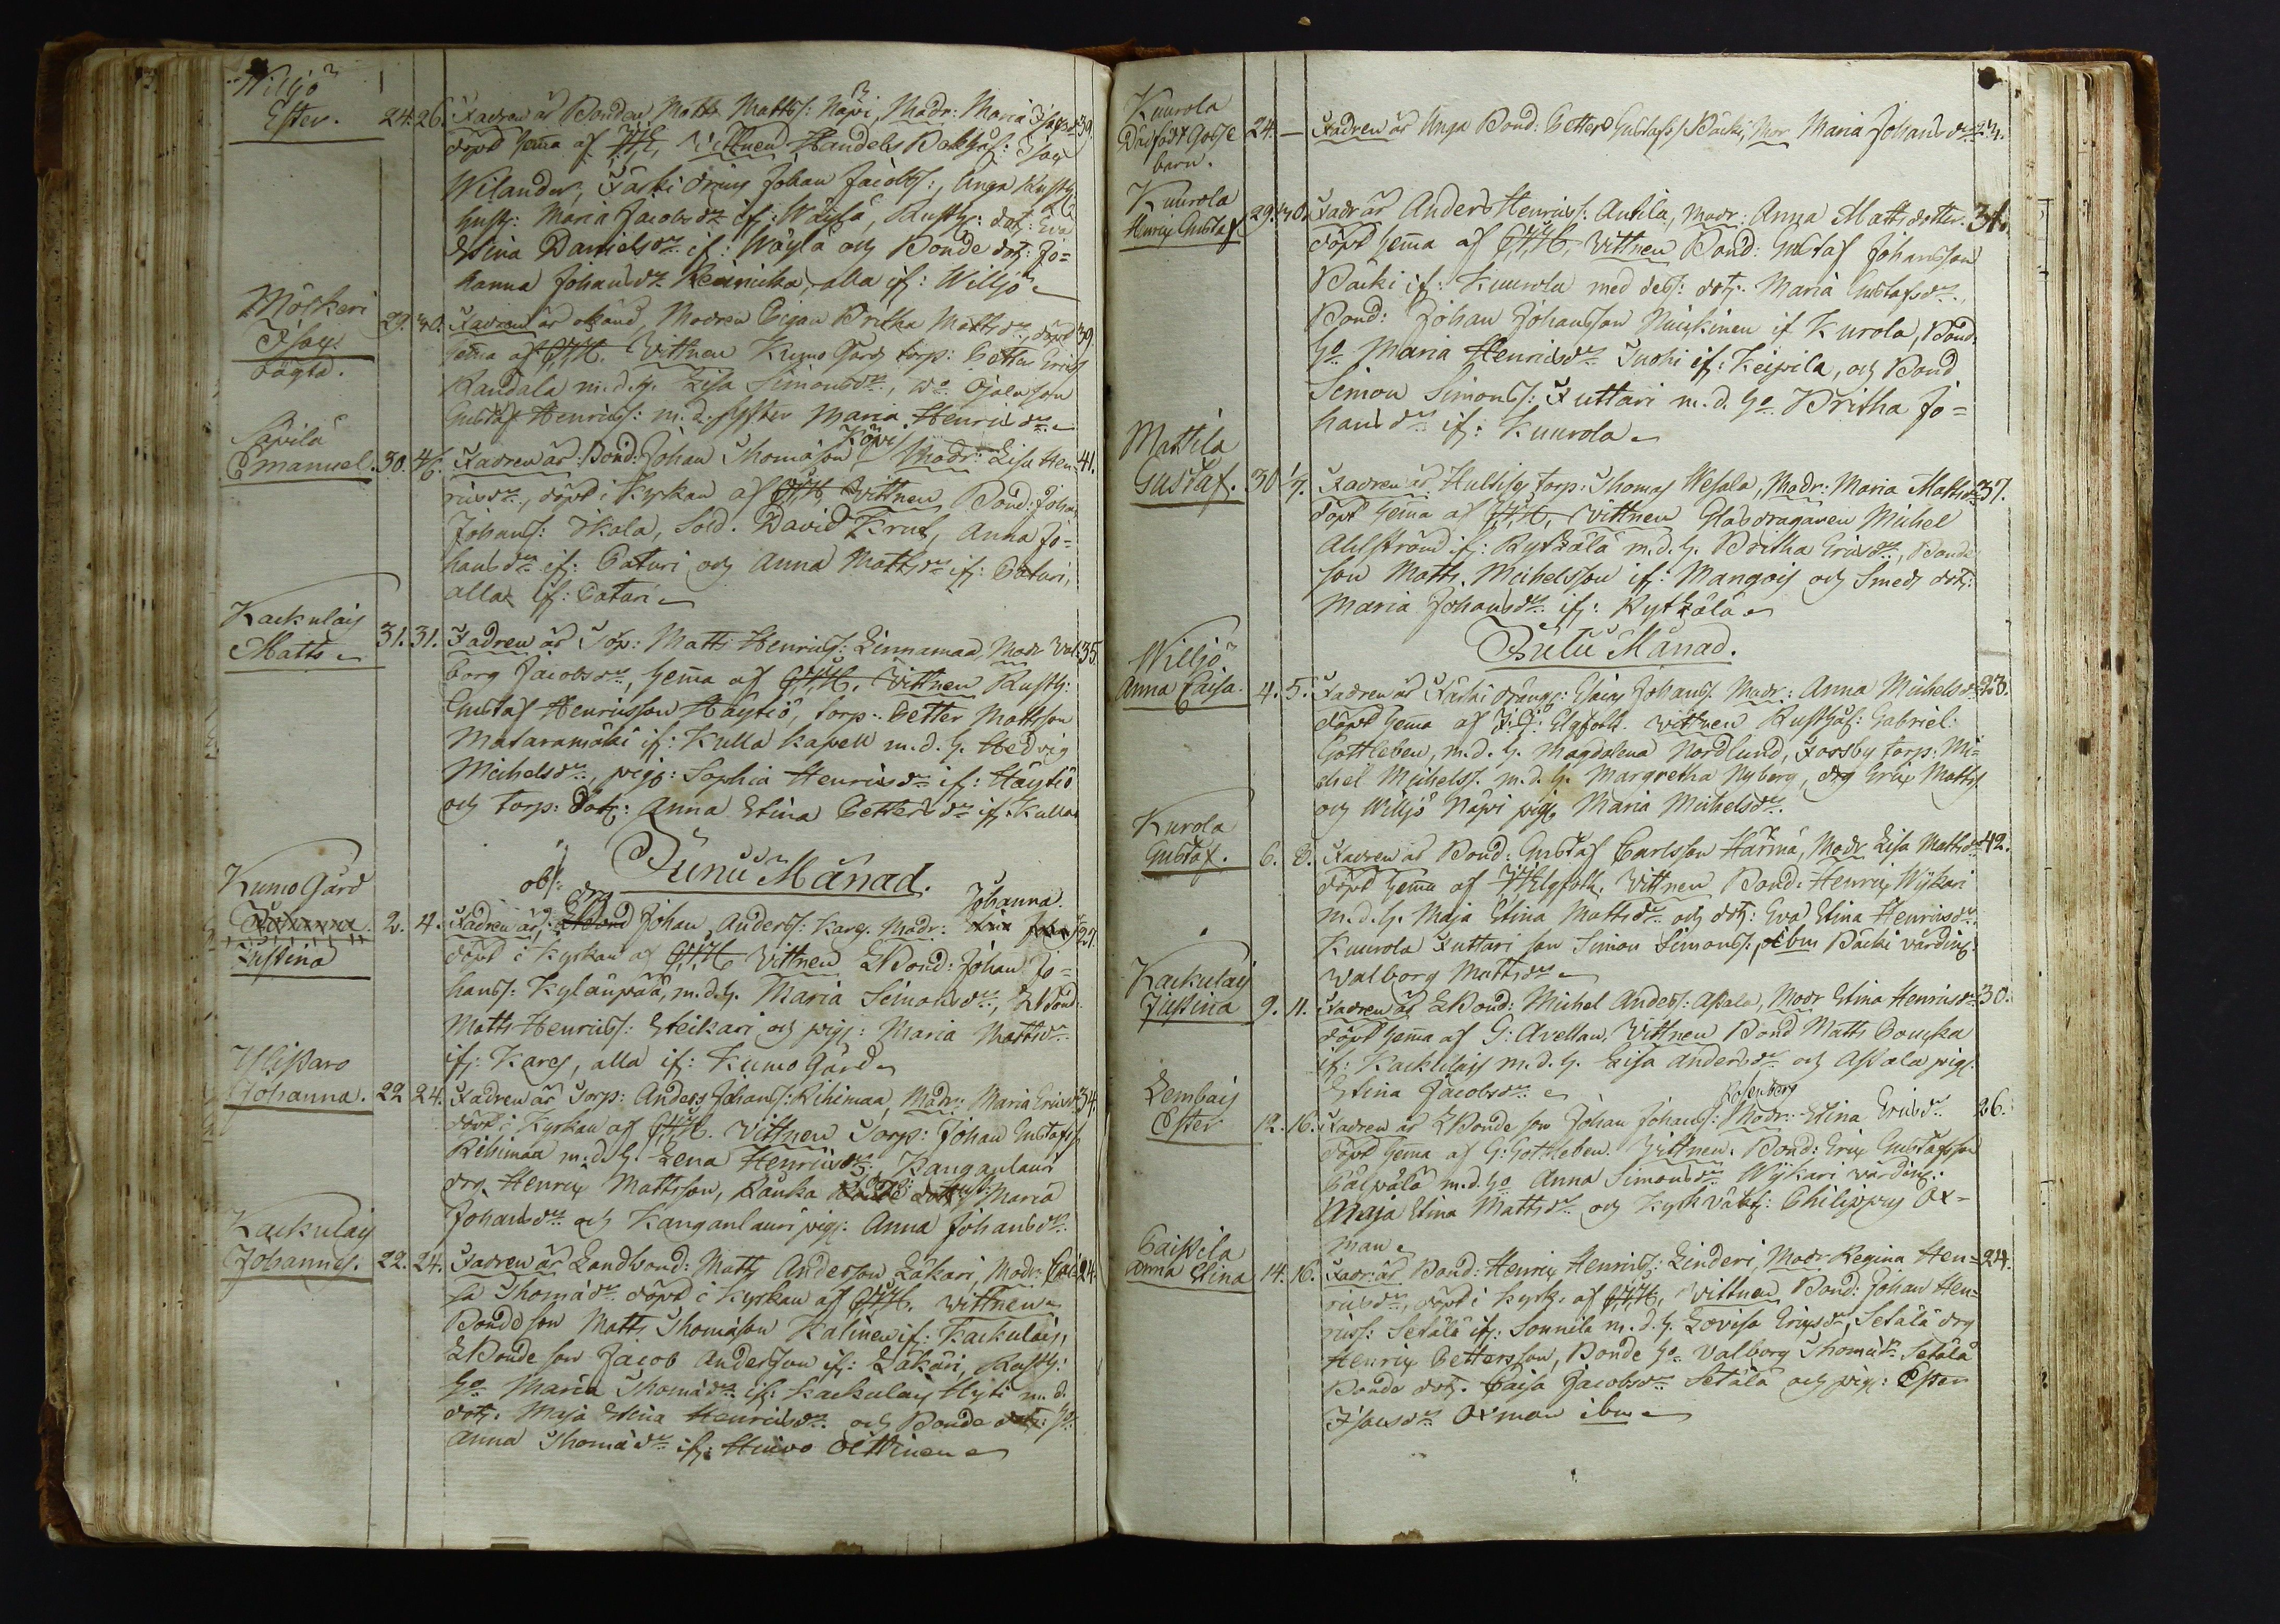 Willjö
Ester. 24. 26. Fadren är Bonden Matts Matts: Näpi, Modr: Maria Isacsdr 39.
döpt hema af Vittnen Handels Bokh: Isac
Wilander, Fäski dräng Johan Jacobs:, Unga Rusth:
hust: Maria Jacobsdr if: Wäylä, Rusth: dot: Eva
Stina Danielsdr if: Wäylä och Bonde dot: Jo=
hanna Johansdr alla if: Willjö
Möskeri
Isac.
oägta. 29. 30. Fadren är okänd, Modren Pigan Britha Mattsdr, döpt 39.
hema af Vittnen Kumo Gårds torp: Petter Erics
Randala m. d. h. Lisa Simonsdr,
Gustaf Henrics: m. d. syster Maria Henricsdr
Säpilä
Emanuel. 30. 4/6. Fadren är Bond: Johan Thomason Köpi, Modr: Lisa Hen= 41.
ricsdr, döpt i Kyrkan af Vittnen Bond: Johan
Johans: Skala, Sold. David Krut, Anna Jo=
hansdr if: Paturi och Anna Mattsdr if: Paturi,
alla if: Paturi
Kackulais
Matts 31. 31. Fadren är Torp: Matts Henrics: Linnamaa, Modr Val= 35.
borg Jacobsdr, hema af Vittnen Rusth:
Gustaf Henricsson Häytiö, torp: Petter Mattsson
Mataramäki if: Kulla Kapell m. d. h. Hedvig
Michelsdr, pig: Sophia Henricsdr if: Häytiö
och torp: dot: Anna Stina Pettersdr if: Kulla
Junii Månad.
Kumo Gård
Justina 2. 4. Fadren är, obs: drg Johan Anders: Karg. Modr: Johanna 27.
döpt i Kyrkan af Vittnen LBond: Johan Jo=
hans: Kylänpää, m. d. h. Maria Simonsdr, LBond:
Matts Henrics: Steikari och pig: Maria Mattsdr
if: Karg, alla if: Kumo Gård
Ylistaro
Johanna. 22 24. Fadren är Torp: Anders Johans: Rihimaa, Modr: Maria Ericsdr 34.
döpt i Kyrkan af Vittnen Torp: Johan Gustafs
Rihimaa m. d. h. Lena Henricsdr, Kanganlauri
drg. Henric Mattsson, Räuka hust: Maria
Johansdr och Kanganlauri pig: Anna Johansdr
Kackulais
Johannes. 22. 24. Fadren är Landbond: Matts Andersson Läkäri, Modr: Cai= 24.
sa Thomädr döpt i Kyrkan af Vittnen
Bondeson Matts Thomäson Kalinen if: Kackulais,
LBonde son Jacob Andersson if: Läkäri, Rusth:
ho Maria Thomädr if: Kackulais Hyti m. d.
dot: Maja Stina Henricsdr och Bonde ho
Anna Thomädr if: Hiivo Ollinen
Kuurola
Dödfödt Gosse
barn. 24. — Fadren är Unga Bond: Petter Gustafs: Päcki, Mor Maria Johansdr 24.
Kuurola
Henric Gustaf 29. 30. Fadr är Anders Henrics: Antila, Modr: Anna Mattsdotter 31.
döpt hema af Vittnen Bond: Gustaf Johansson
Päcki if: Kuurola med dess: dot: Maria Gustafsdr.,
Bond: Johan Johansson Nuickinen if Kurola, Bond.
ho Maria Henricsdr Suoki if: Keipila, och Bond
Simon Simons: Juttari m. d. ho Britha Jo=
hansdr if: Kuurola
Mattila
Gustaf. 30 1/7. Fadren är Huldisg torp: Thomas Wesala, Modr: Maria Mattsdr 37.
döpt hema af Vittnen Glasdragaren Michel
Ahlström if: Kytkälä m. d. h. Britha Ericsdr, Bonde
son Matts Michelsson if: Mangois och Smeds dot:
Maria Johansdr if: Kytkälä
Julii Månad.
Willjö
Anna Caisa. 4. 5. Fadren är Fäski dräng: Johans. Modr: Anna Michelsdr 23.
döpt hema af J: J: Elgfoth Vittnen Rusthål: Gabriel
Gottleben, m. d. h. Magdalena Nordlund, Forsby torp: Mi=
chel Michels: m. d. h. Margretha Nyberg, drg Eric Matts
och Willjö Näpi pig Maria Michelsdr.
Kurola
Gustaf. 6. 8. Fadren är Bond: Gustaf Carlsson Härmä, Modr Lisa Mattsdr 42.
döpt hema af J: J: Elgfoth. Vittnen Bond: Henric Wykari
m. d. h. Maja Stina Mattsdr och dot: Eva Stina Henricsdr,
Kuurola Juttari son Simon Simons:, o ibm Päcki värding
Walborg Mattsdr
Kackulais
Justina 9. 11. Fadren är LBond: Michel Anders: Assala, Modr Stina Henricsdr 30.
döpt hema af G: Avellan, Vittnen Bond Matts Pouska
if: Kackulais m. d. h. Caisa Andersdr och Assala pig
Stina Jacobsdr
Lembais
Ester 12. 16. Fadren är LBonde son Johan Johans: Rosenberg Modr: Stina Ericsdr 26.
döpt hema af G: Gottleben. Vittnen. Bond: Eric Gustafsson
Pälpälä m. d. ho Anna Simonsdr Wykari värding:
Maja Stina Mattsdr och Kyrk väkt: Philippus Ox=
man
Paistila
Anna Stina 14. 16. Fadr är Bond: Henric Henrics: Linderi, Modr Regina Hen= 24.
ricsdr, döpt i Kyrk. af Vittnen Bond: Johan Hen=
rics: Setälä if: Sonnila m. d. h. Lovisa Ericsdr, Setälä drg
Henric Pettersson, Bonde ho Valborg Thomädr Setälä
Bonde dot. Caisa Jacobsdr Setälä och pig: Ester
Isacsdr Oxman ibm